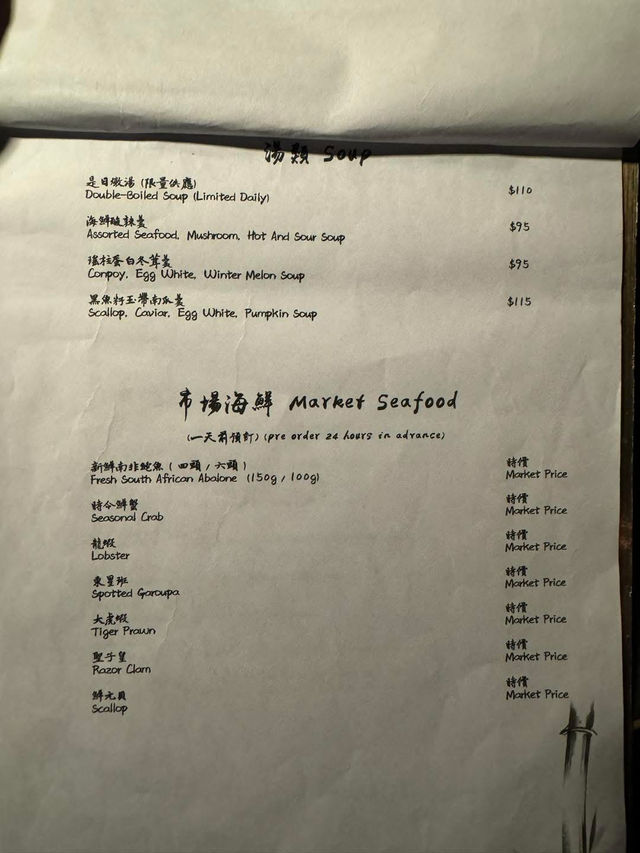 湯類 Soup
是日燉湯 (限量供應)
Double-Boiled Soup (Limited Daily)
$110
海鮮酸辣羹
Assorted Seafood, Mushroom, Hot And Sour Soup
$95
瑤柱蛋白冬茸羹
Conpoy, Egg White, Winter Melon Soup
$95
黑魚籽玉帶南瓜羹
Scallop, Caviar, Egg White, Pumpkin Soup
$115
市場海鮮 Market Seafood
(一天前預訂) (pre order 24 hours in advance)
新鮮南非鮑魚 ( 四頭 / 六頭 )
Fresh South African Abalone (150g / 100g)
時價
Market Price
時令鮮蟹
Seasonal Crab
時價
Market Price
龍蝦
Lobster
時價
Market Price
東星班
Spotted Garoupa
時價
Market Price
大虎蝦
Tiger Prawn
時價
Market Price
聖子皇
Razor Clam
時價
Market Price
鮮元貝
Scallop
時價
Market Price